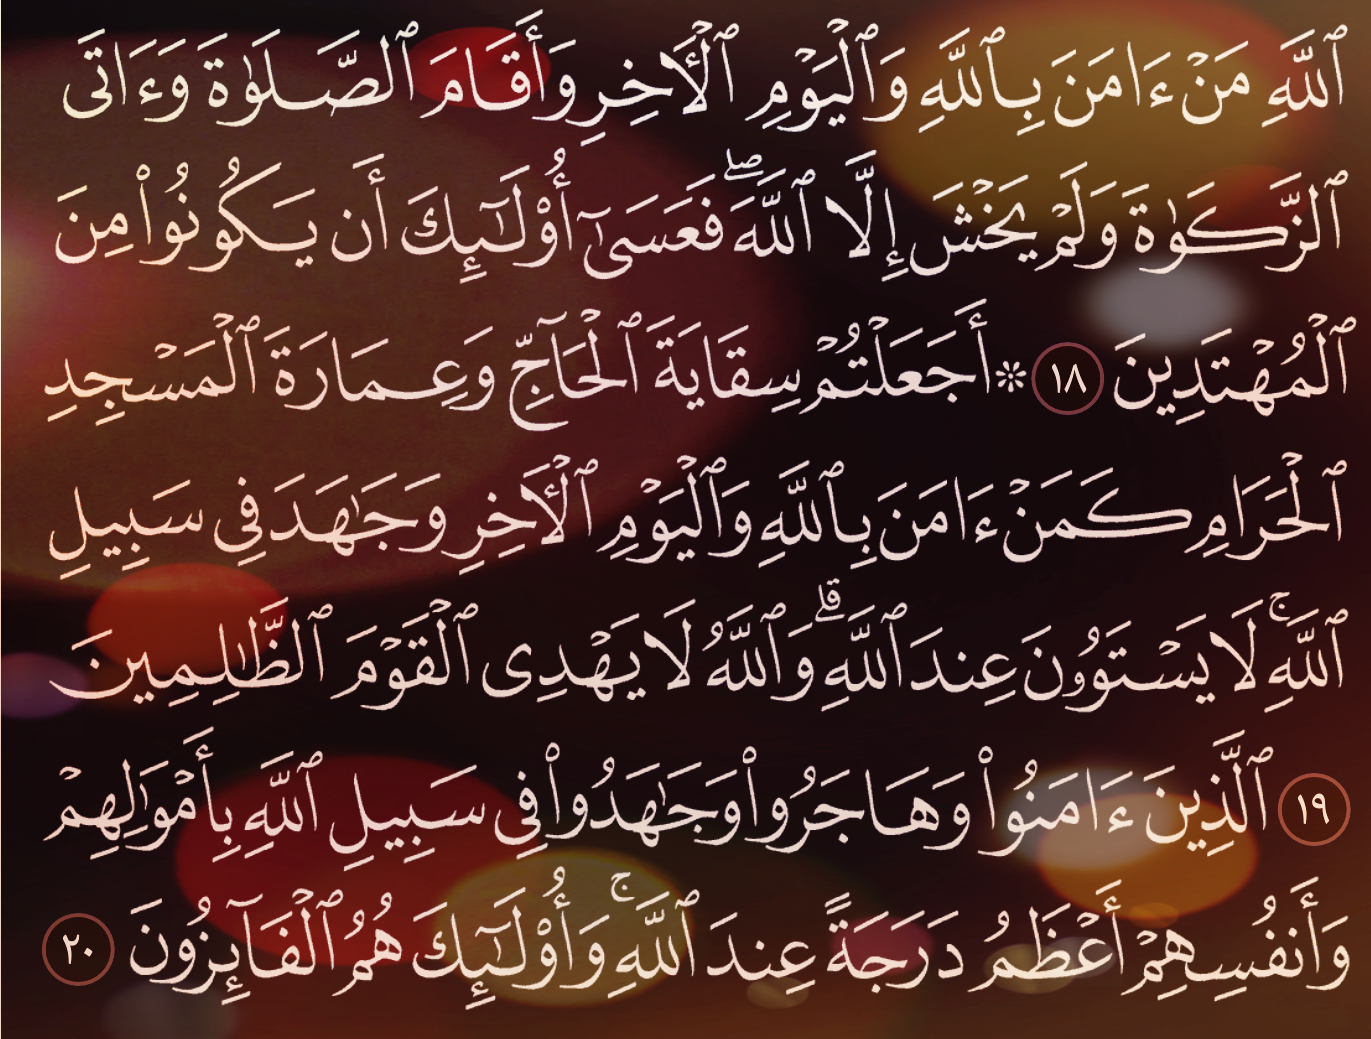 ٱللَّهِ مَنْ ءَامَنَ بِٱللَّهِ وَٱلْيَوْمِ ٱلْأَخِرِ وَأَقَامَ ٱلصَّلَوٰةَ وَءَاتَى
ٱلزَّكَوٰةَ وَلَمْ يَخْشَ إِلَّا ٱللَّهَۖ فَعَسَىٰٓ أُو۟لَـٰٓئِكَ أَن يَكُونُوا۟ مِنَ
ٱلْمُهْتَدِينَ ١٨ ۞ أَجَعَلْتُمْ سِقَايَةَ ٱلْحَآجِّ وَعِمَارَةَ ٱلْمَسْجِدِ
ٱلْحَرَامِ كَمَنْ ءَامَنَ بِٱللَّهِ وَٱلْيَوْمِ ٱلْأَخِرِ وَجَـٰهَدَ فِى سَبِيلِ
ٱللَّهِۚ لَا يَسْتَوُۥنَ عِندَ ٱللَّهِۗ وَٱللَّهُ لَا يَهْدِى ٱلْقَوْمَ ٱلظَّـٰلِمِينَ
١٩ ٱلَّذِينَ ءَامَنُوا۟ وَهَاجَرُوا۟ وَجَـٰهَدُوا۟ فِى سَبِيلِ ٱللَّهِ بِأَمْوَٰلِهِمْ
وَأَنفُسِهِمْ أَعْظَمُ دَرَجَةً عِندَ ٱللَّهِۚ وَأُو۟لَـٰٓئِكَ هُمُ ٱلْفَآئِزُونَ ٢٠